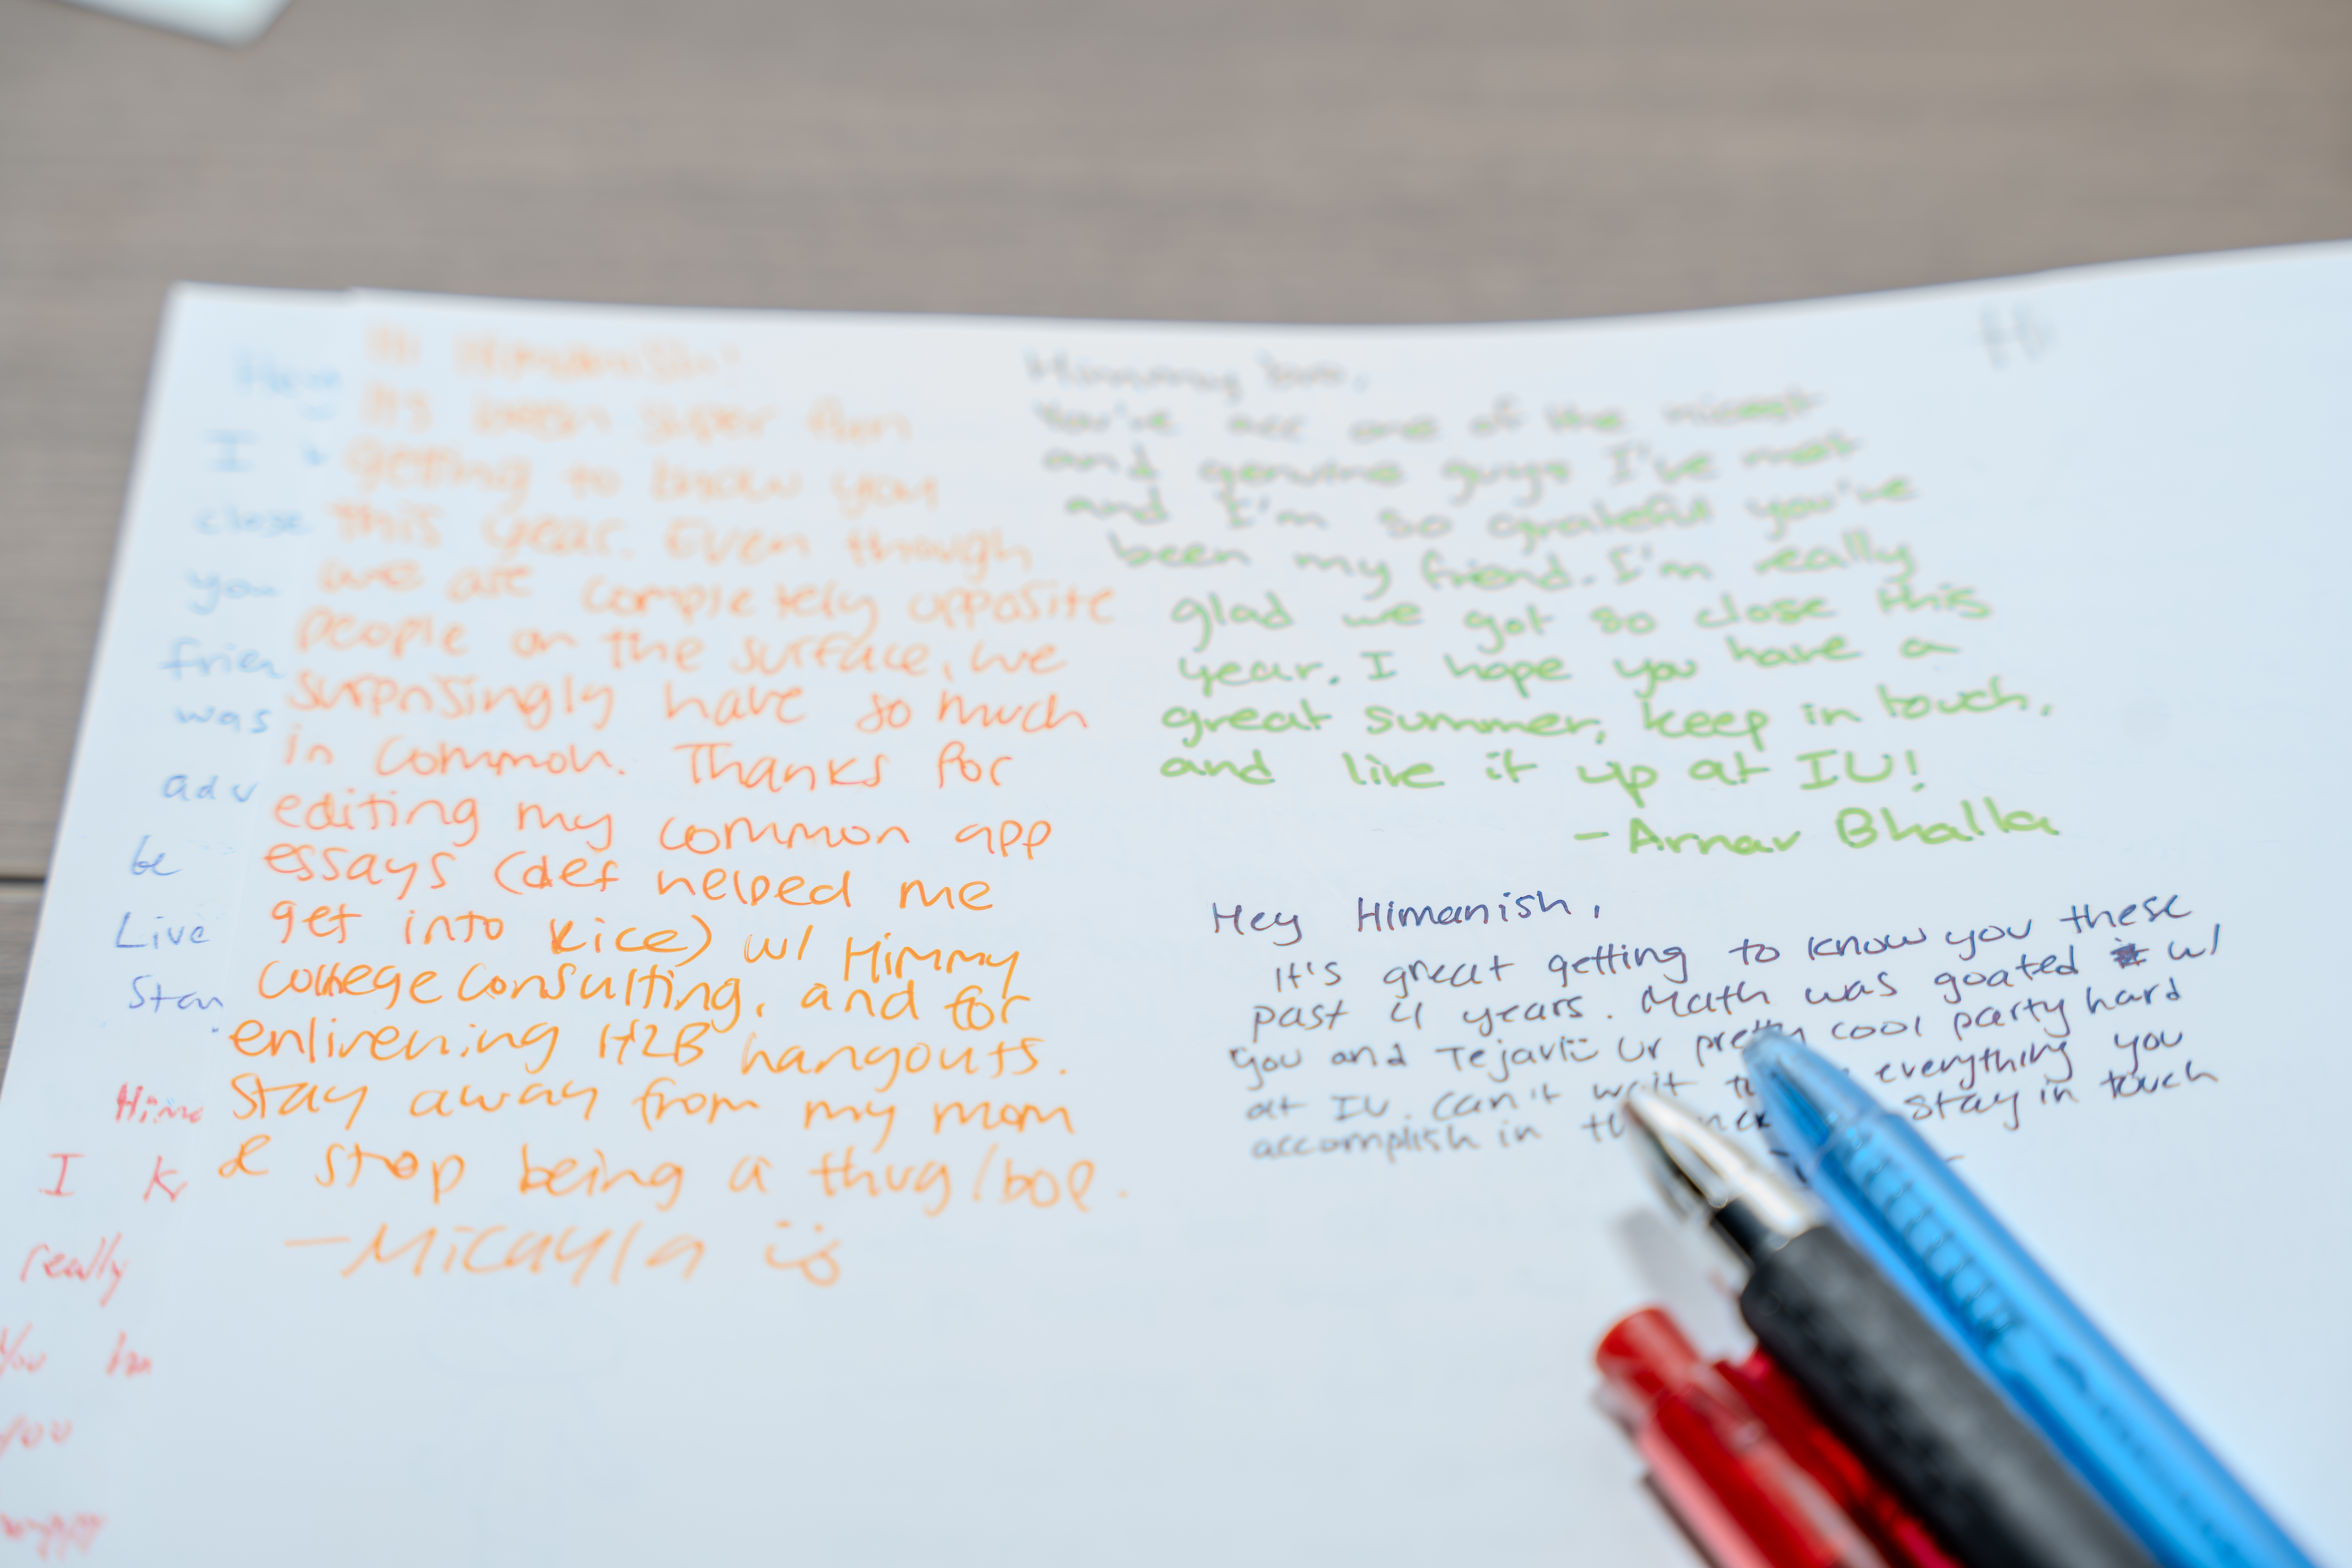 Hi Himanish!
It's been super fun
getting to know you
this year. Even though
we are completely opposite
people on the surface, we
surprisingly have so much
in common. Thanks for
editing my common app
essays (def helped me
get into Rice) w/ Himmy
College Consulting, and for
enlivening H2B hangouts.
Stay away from my mom
& stop being a thug/bop.
-Micayla
Himmy
You're one of the nicest
and genuine guys I've met
and I'm so grateful you've
been my friend. I'm really
glad we got so close this
year. I hope you have a
great summer, keep in touch,
and live it up at IU!
-Arnav Bhalla
Hey Himanish,
It's great getting to know you these
past 4 years. Math was goated w/
you and Tejavi ur pretty cool party hard
at IU. Can't wait everything you
accomplish in stay in touch
I
close
you
was
be
Live
I
really
You
you